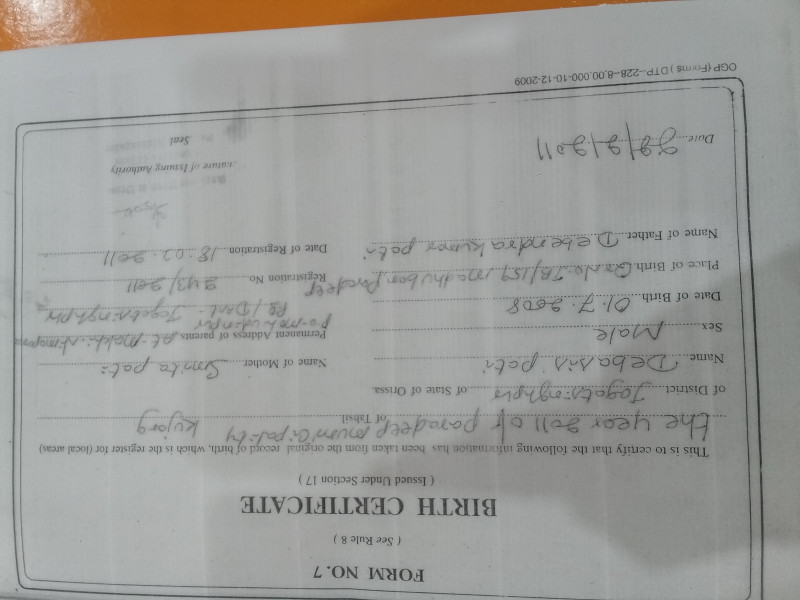 FORM NO. 7
( See Rule 8 )
BIRTH CERTIFICATE
( Issued Under Section 17 )
This is to certify that the following information has been taken from the original record of birth, which is the register for (local areas)
the year 2011 of paradeep municipality of Tahsil Kujang
of District Jagatsinghpur of State of Orissa
Name Debasis pati
Name of Mother Smita pati
Sex Male
Permanent Address of parents
Date of Birth 01.7.2008
Jagatsinghpur
Place of Birth madhuban paradeep
Registration No 243/2011
Name of Father Debendra kumar pati
Date of Registration 18.02.2011
Signature of Issuing Authority
Date 22/2/2011
Seal
OGP (Forms) DTP—228—8,00,000-10-12-2009